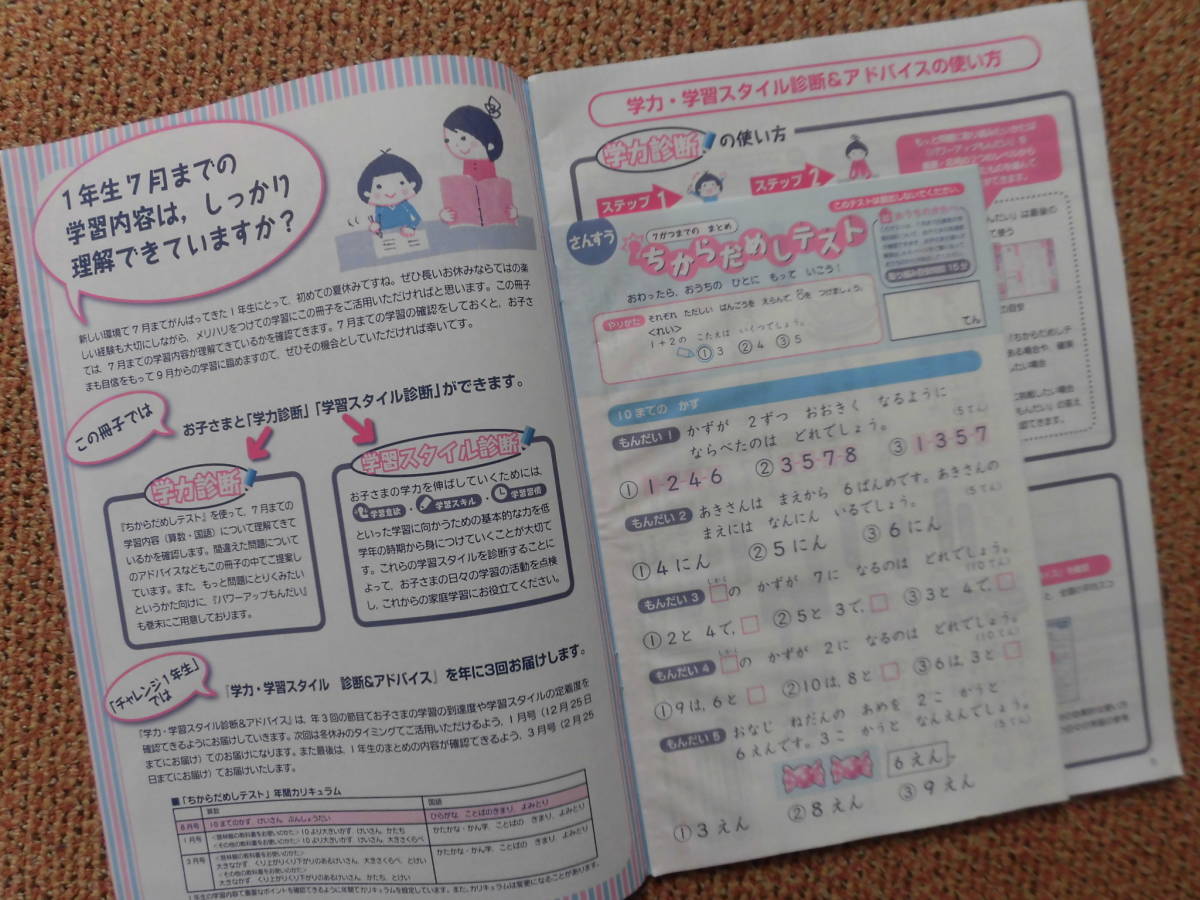 1年生7月までの
学習内容は，しっかり
理解できていますか？
新しい環境で7月までがんばってきた1年生にとって，初めての夏休みですね。ぜひ長いお休みならではの楽
しい経験も大切にしながら，メリハリをつけての学習にこの冊子をご活用いただければと思います。この冊子
では，7月までの学習内容が理解できているかを確認できます。7月までの学習の確認をしておくと，お子さ
まも自信をもって9月からの学習に臨めますので，ぜひその機会としていただければ幸いです。
この冊子では
お子さまと「学力診断」「学習スタイル診断」ができます。
学力診断
『ちからだめしテスト』を使って，7月までの
学習内容（算数・国語）について理解できて
いるかを確認します。間違えた問題について
のアドバイスなどもこの冊子の中でご提案し
ています。また，もっと問題にとりくみたい
というかた向けに，『パワーアップもんだい』
も巻末にご用意しております。
学習スタイル診断
お子さまの学力を伸ばしていくためには，
学習意欲・学習スキル・学習習慣
といった学習に向かうための基本的な力を低
学年の時期から身につけていくことが大切で
す。これらの学習スタイルを診断することに
よって，お子さまの日々の学習の活動を点検
し，これからの家庭学習にお役立てください。
「チャレンジ1年生」
では
『学力・学習スタイル 診断&アドバイス』を年に3回お届けします。
『学力・学習スタイル診断&アドバイス』は，年3回の節目でお子さまの学習の到達度や学習スタイルの定着度を
確認できるようにお届けしていきます。次回は冬休みのタイミングでご活用いただけるよう，1月号（12月25日
までにお届け）でのお届けになります。また最後は，1年生のまとめの内容が確認できるよう，3月号（2月25
日までにお届け）でお届けいたします。
■「ちからだめしテスト」年間カリキュラム
算数 国語
8月号 10までのかず けいさん ぶんしょうだい ひらがな ことばのきまり，よみとり
1月号 10より大きいかず けいさん かたち
10より大きいかず けいさん 大きさくらべ
かたかな・かん字，ことばの きまり，よみとり
3月号
大きなかず くり上がりくり下がりのあるけいさん 大きさくらべ とけい
＜その他の教科書をお使いのかた＞
大きなかず くり上がりくり下がりのあるけいさん かたち，とけい
かたかな・かん字，ことばの きまり，よみとり
1年生の学習内容で重要なポイントを確認できるように年間でカリキュラムを設定しています。また，カリキュラムは変更になることがあります。
学力・学習スタイル診断&アドバイスの使い方
学力診断の使い方
ステップ1
ステップ2
このテストは提出しないでください。
さんすう
7がつまでの まとめ
ちからだめしテスト
おわったら，おうちの ひとに もって いこう！
やりかた それぞれ ただしい ばんごうを えらんで，○を つけましょう。
＜れい＞
1＋2の こたえは いくつでしょう。
①3 ②4 ③5
てん
10までの かず
もんだい1 かずが 2ずつ おおきく なるように
ならべたのは どれでしょう。
(5てん)
①1-2-4-6 ②3-5-7-8 ③1-3-5-7
もんだい2 あきさんは まえから 6ばんめです。あきさんの
まえには なんにん いるでしょう。
(5てん)
①4にん ②5にん ③6にん
もんだい3 □の かずが 7に なるのは どれでしょう。
(10てん)
①2と 4で，□ ②5と 3で，□ ③3と 4で，□
もんだい4 □の かずが 2に なるのは どれでしょう。
(10てん)
①9は，6と □ ②10は，8と □ ③6は，3と □
もんだい5 おなじ ねだんの あめを 2こ かうと
6えんです。3こ かうと なんえんでしょう。
(5てん)
6えん
①3えん ②8えん ③9えん